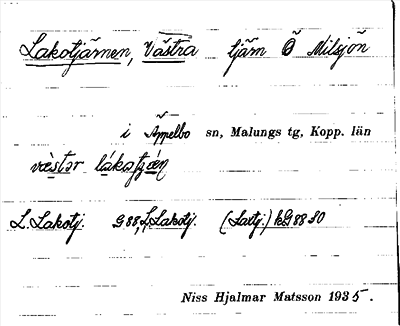 Lakotjärnen, Västra tjärn Ö Milsjön
i Äppelbo sn, Malungs tg, Kopp. län
västər lákatjǽn
L. Lakotj. G 88, L. Lakotj. (Lartj.) kG 88 SO
Niss Hjalmar Matsson 1935.